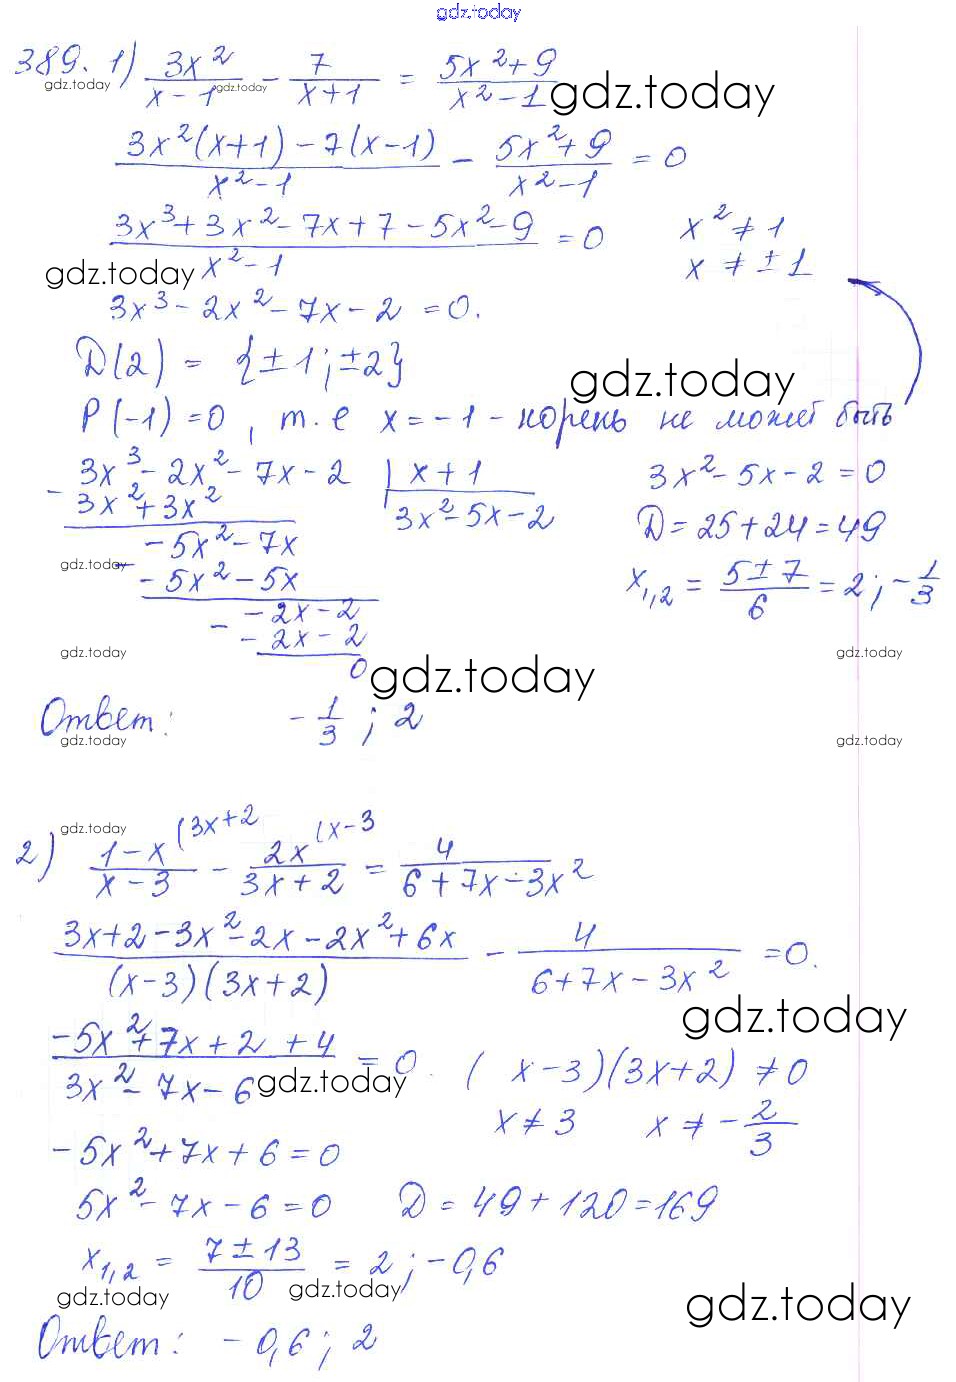 gdz.today
389. 1) 3x²/(x-1) - 7/(x+1) = (5x²+9)/(x²-1) gdz.today
gdz.today gdz.today
(3x²(x+1)-7(x-1))/(x²-1) - (5x²+9)/(x²-1) = 0
(3x³+3x²-7x+7-5x²-9)/(x²-1) = 0 x² ≠ 1
gdz.today x ≠ ±1
3x³-2x²-7x-2=0.
D(2) = {±1; ±2} gdz.today
P(-1)=0, т.е x=-1 - корень не может быть
3x³-2x²-7x-2 | x+1 3x²-5x-2=0
-3x²+3x² 3x²-5x-2 D=25+24=49
-5x²-7x
gdz.today - -5x²-5x x₁,₂ = (5±7)/6 = 2; -1/3
-2x-2
- -2x-2
gdz.today gdz.today
0 gdz.today
Ответ: -1/3; 2
gdz.today gdz.today
gdz.today
2) (1-x)/(x-3) (3x+2 - 2x/(3x+2) (x-3 = 4/(6+7x-3x²)
(3x+2-3x²-2x-2x²+6x)/((x-3)(3x+2)) - 4/(6+7x-3x²) =0.
gdz.today
(-5x²+7x+2+4)/(3x²-7x-6) = 0. (x-3)(3x+2) ≠ 0
gdz.today
x ≠ 3 x ≠ -2/3
-5x²+7x+6=0
5x²-7x-6=0 D=49+120=169
x₁,₂ = (7±13)/10 = 2; -0,6
gdz.today gdz.today gdz.today
Ответ: -0,6; 2